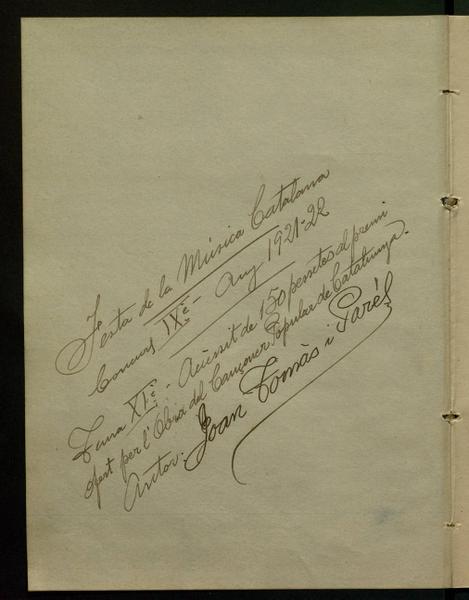 Festa de la Música Catalana
Concurs IXè - Any 1921-22
Tema XIè. - Accèssit de 150 pessetes al premi
ofert per l'Obra del Cançoner Popular de Catalunya.
Autor: Joan Tomàs i Parés